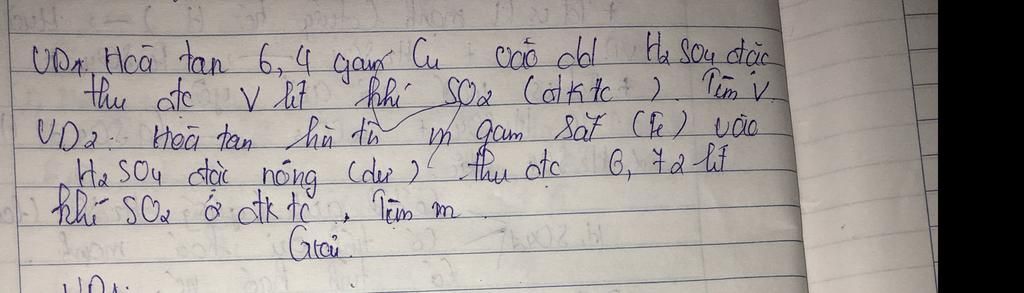 VD1. Hoà tan 6,4 gam Cu vào dd H2SO4 đặc
thu đc V lít khí SO2 (đktc). Tìm V.
VD2: Hoà tan h/h từ m gam Sắt (Fe) vào
H2SO4 đặc nóng (dư) thu đc 6,72 lít
khí SO2 ở đktc. Tìm m
Giải.
VD1: